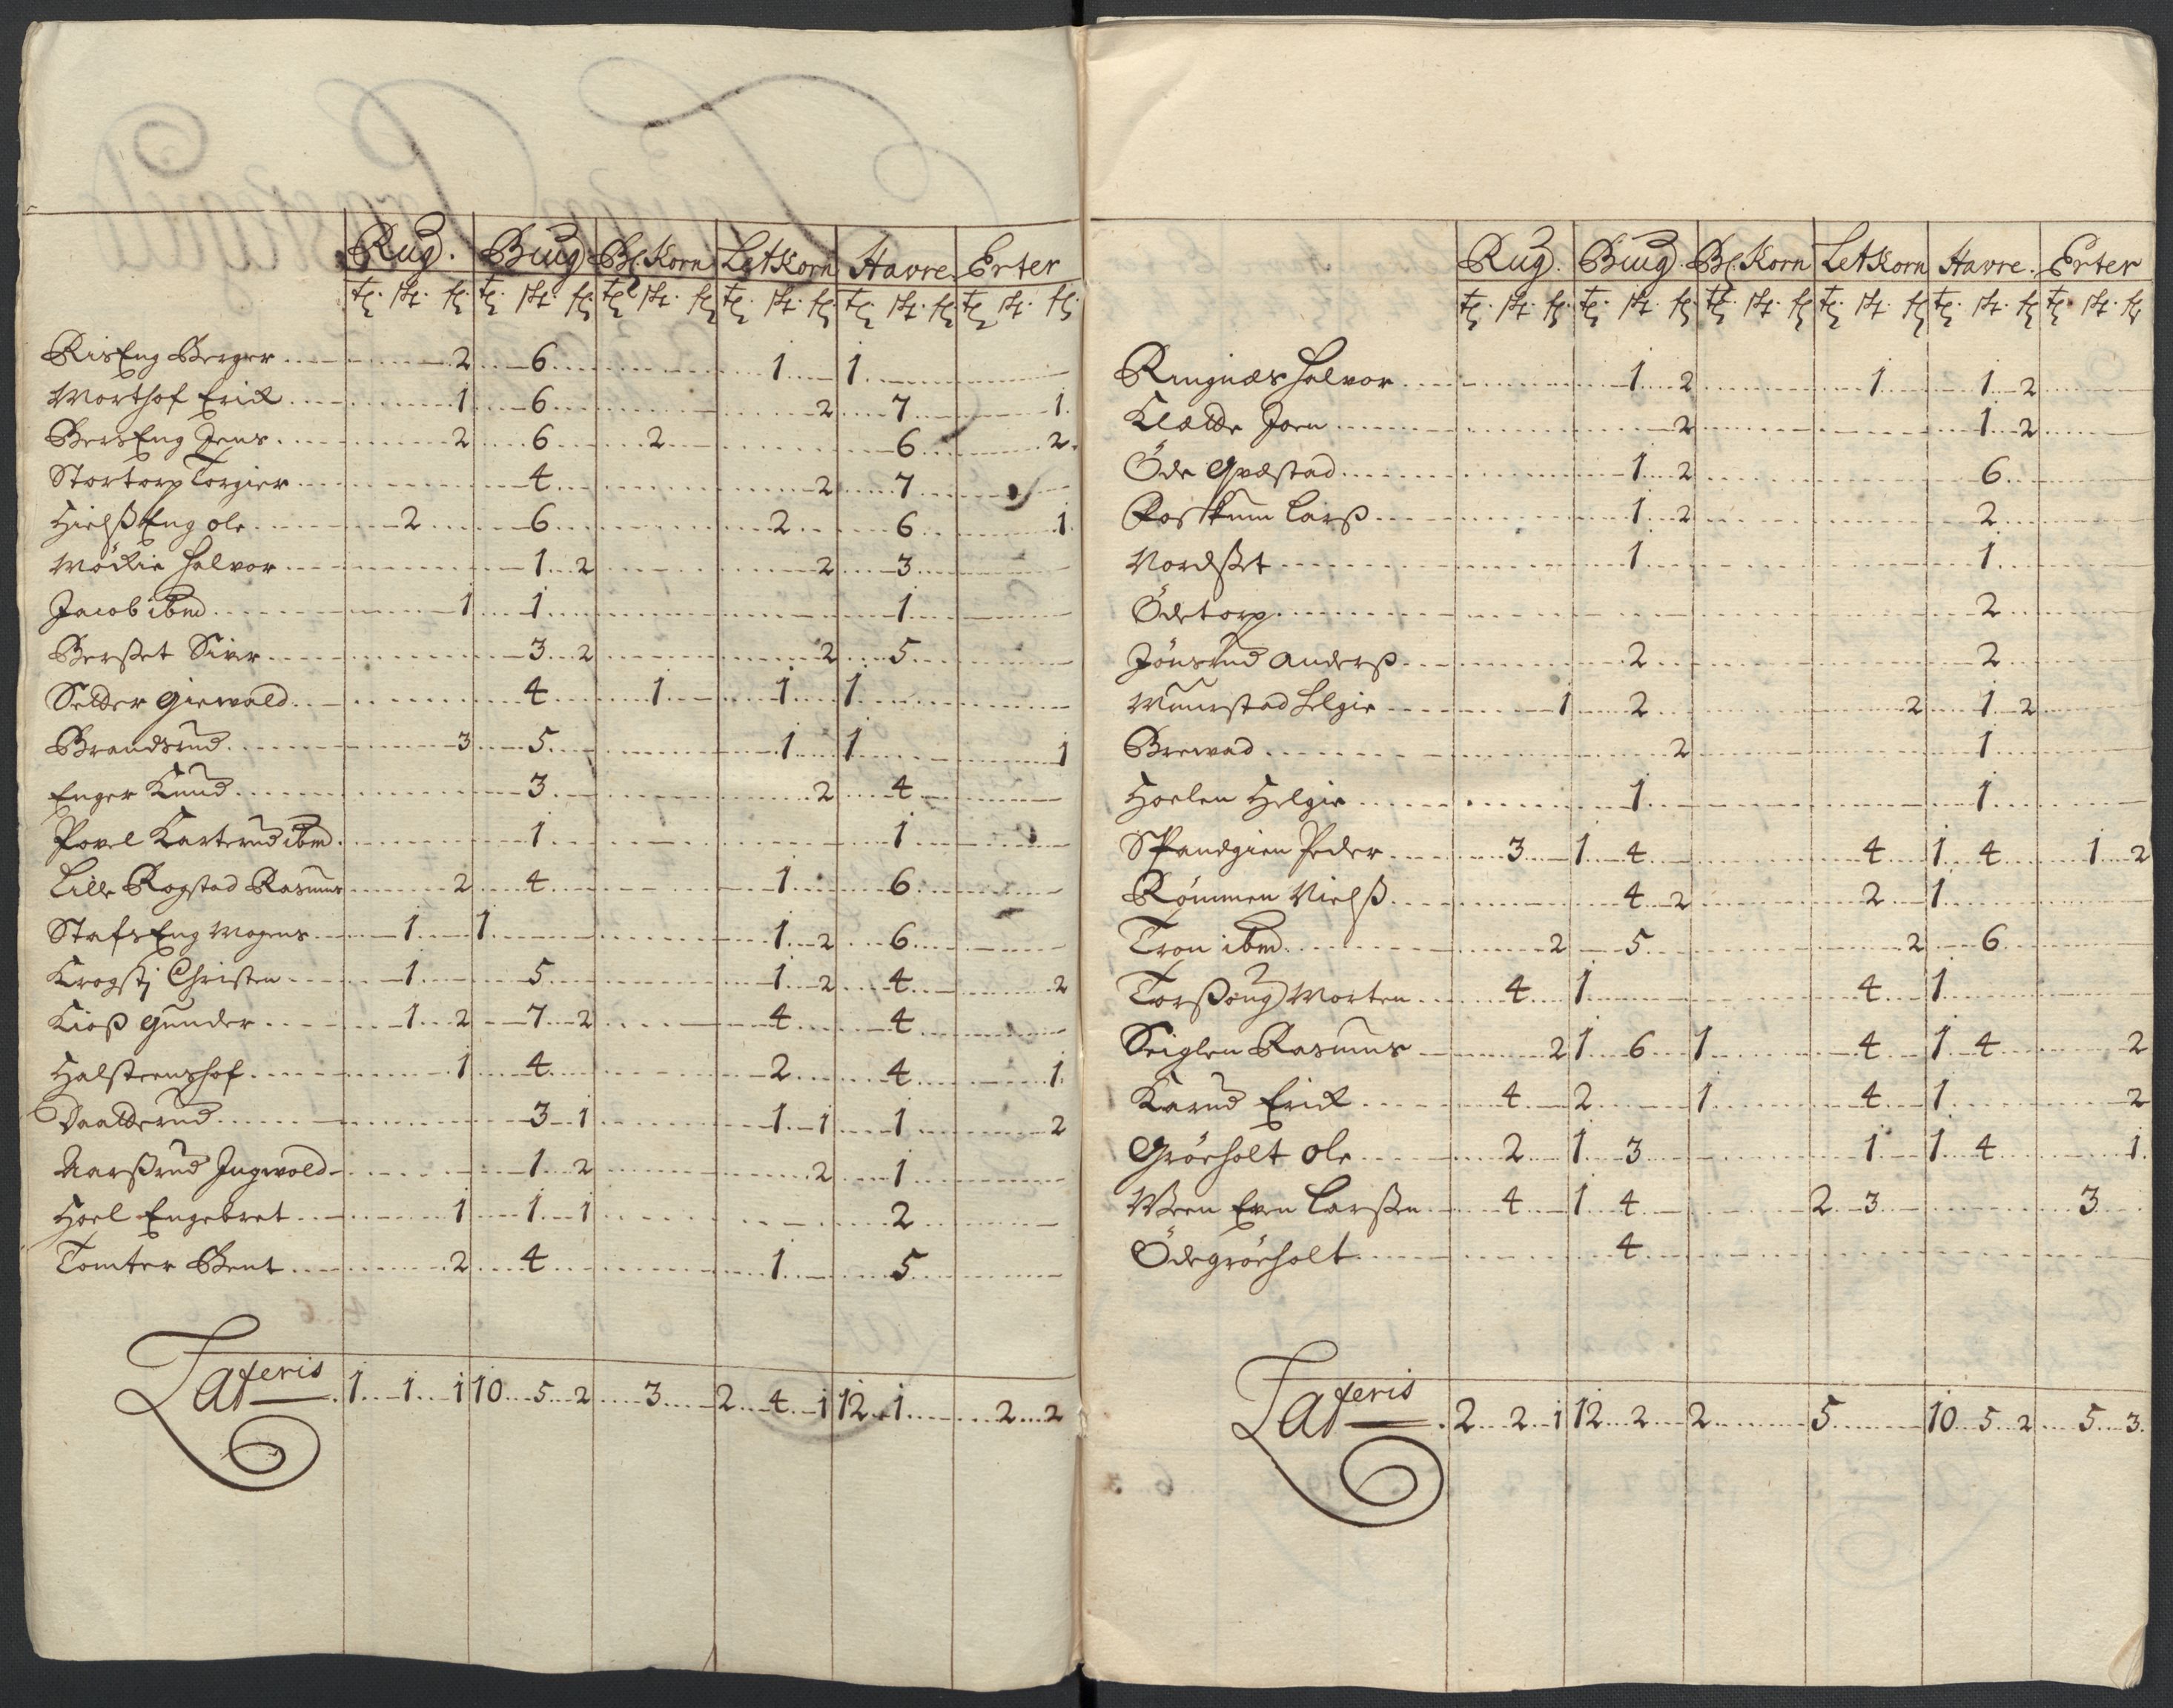 Rug. Biug Bl: Korn LetKorn Havre Erter
tr. sk. fr. tr. sk. fr. tr. sk. fr. tr. sk. fr. tr. sk. fr. tr. sk. fr.
RisEng Berger 2 6 1 1
Morthof Erich 1 6 2 7 1
BersEng Jens 2 6 2 6 2
Stortorp Torgier 4 2 7
HielßEng ole 2 6 2 6 1
Möckie Halvor 1 2 2 3
Jacob ibm 1 1 1
Berßet Siver 3 2 2 5
Selder Giewald 4 1 1 1
Brandsrud 3 5 1 1 1
Enger Knud 3 2 4
Povel Karterud ibm 1 1
Lille Rogstad Rasmus 2 4 1 6
StafsEng Mogens 1 1 1 2 6
Krogstj Christen 1 5 1 2 4 2
Kioß Gunder 1 2 7 2 4 4
Halsteenshof 1 4 2 4 1
Daalderud 3 1 1 1 1 2
Aarßrud Ingwold 1 2 2 1
Hoel Engebret 1 1 1 2
Tomter Bent 2 4 1 5
Lateris 1 1 1 10 5 2 3 2 4 1 12 1 2 2
Rug. Biug. Bl: Korn LetKorn Havre. Erter
tr. sk. fr. tr. sk. fr. tr. sk. fr. tr. sk. fr. tr. sk. fr. tr. sk. fr.
Ringnæs Halvor 1 2 1 1 2
Kladde Joen 2 1 2
Öde Qvæstad 1 2 6
Larß 1 2 2
Nordßet 1 1
Ödetorp 2
Jönsrud Anderß 2 2
Muurstad Helgie 1 2 2 1 2
Brewad 2 1
Hoelen Helgie 1 1
Spandgien Peder 3 1 4 4 1 4 1 2
Römmen Nielß 4 2 2 1
Tron ibm 2 5 2 6
Torßoug Morten 4 1 4 1
Seiglen Rasmus 2 1 6 1 4 1 4 2
Karud Erich 4 2 1 4 1 2
Gröeholt Ole 2 1 3 1 1 4 1
Even Larßen 4 1 4 2 3 3
Ödegröeholt 4
Lateris 2 2 1 12 2 2 5 10 5 2 5 3